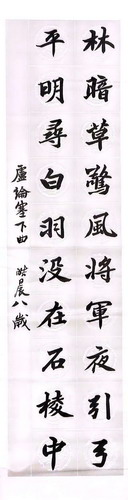 林暗草驚風將軍夜引弓
平明尋白羽没在石棱中
盧綸塞下曲 皓晨八歲